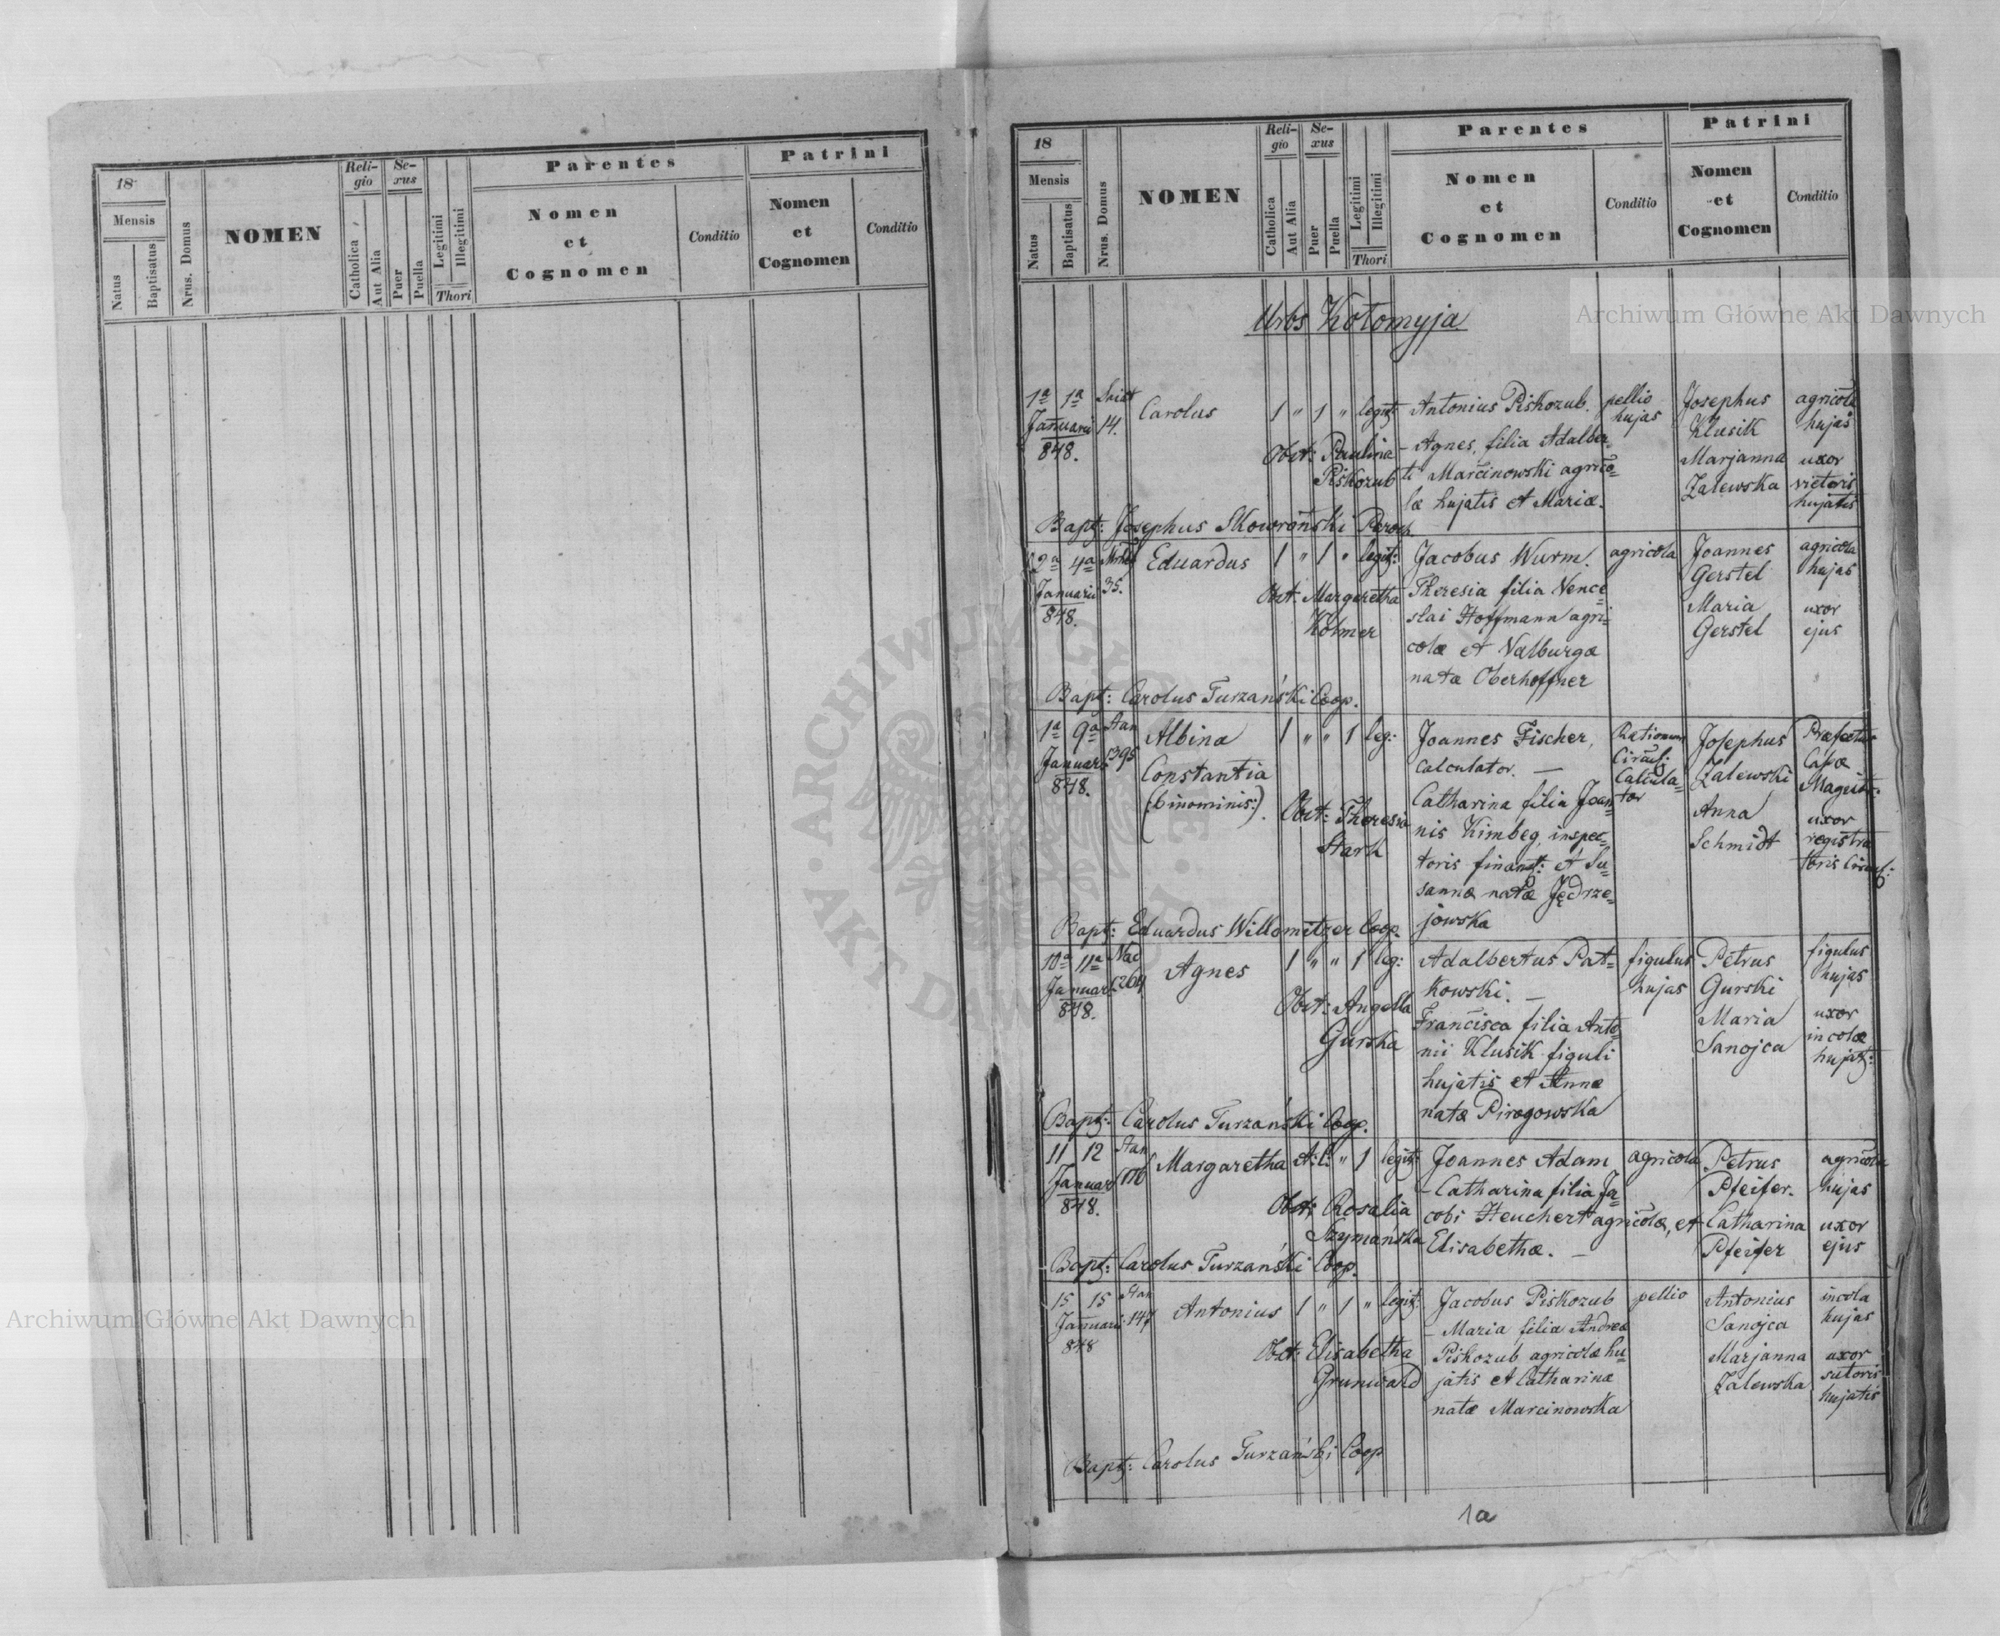 18
Mensis
Natus
Baptisatus
Nrus. Domus
NOMEN
Reli-
gio
Catholica
Aut Alia
Se-
xus
Puer
Puella
Legitimi
Illegitimi
Thori
Parentes
Nomen
et
Cognomen
Conditio
Patrini
Nomen
et
Cognomen
Conditio
18
Mensis
Natus
Baptisatus
Nrus. Domus
NOMEN
Reli-
gio
Catholica
Aut Alia
Se-
xus
Puer
Puella
Legitimi
Illegitimi
Thori
Parentes
Nomen
et
Cognomen
Conditio
Patrini
Nomen
et
Cognomen
Conditio
Archiwum Główne Akt Dawnych
Urbs Kołomyja
1a 1a
Januarii 14.
848.
Carolus
1 " 1 " legit:
Obst: Paulina
Piskozub
Antonius Piskozub.
– Agnes, filia Adalber-
ti Marcinowski agrico-
læ hujatis et Mariæ.
pellio
hujas
Josephus
Klusik
Marjanna
Zalewska
agricola
hujas
uxor
vietoris
hujatis
Bapt: Josephus Skowroński Paroch
2a 4a
Januarii 35.
848.
Eduardus
1 " 1 " legit:
Obst: Margaretha
Kolmer
Jacobus Wurm.
Theresia filia Vence-
slai Hoffmann agri-
colæ et Valburgæ
natæ Oberhoffner
agricola
Joannes
Gerstel
Maria
Gerstel
agricola
hujas
uxor
ejus
Bapt: Carolus Turzański Coop.
1a 9a Stan
Januarii 395
848.
Albina
Constantia
(binominis:).
1 " " 1 leg:
Obst: Theresia
Stark
Joannes Fischer,
calculator. —
Catharina filia Joan-
nis Kimbeg, inspec-
toris finant: et Su-
sannæ natæ Jędrze-
jowska
Rationum
Circul:
Calcula-
tor
Josephus
Zalewski
Anna
Schmidt
Præfectus
Cassæ
Magistr:
uxor
registra
toris Circul:
Bapt: Eduardus Willomitzer Coop.
10a 11a Nad
Januar 264
848.
Agnes
1 " " 1 leg:
Obst: Angella
Gurska
Adalbertus Pat-
kowski. —
Francisca filia Anto-
nii Klusik figuli
hujatis et Annæ
natæ Pirogowska
figulus
hujas
Petrus
Gurski
Maria
Sanojca
figulus
hujas
uxor
incolæ
hujat:
Bapt: Carolus Turzański Coop.
11 12 Stan
Januar 176
848.
Margaretha
A: C: " 1 legit:
Obst: Rosalia
Szymańska
Joannes Adam
– Catharina filia Ja-
cobi Heuchert agricolæ, et
Elisabethæ. —
agricola
Petrus
Pfeifer.
Catharina
Pfeifer
agricola
hujas
uxor
ejus
Bapt: Carolus Turzański Coop.
15 15 Stan
Januarii 147
848
Antonius
1 " 1 " legit:
Obst: Elisabetha
Grunwald
Jacobus Piskozub
– Maria filia Andreæ
Piskozub agricolæ hu-
jatis et Catharinæ
natæ Marcinowska
pellio
Antonius
Sanojca
Marjanna
Zalewska
incola
hujas
uxor
sutoris
hujatis
Bapt: Carolus Turzański Coop
1a
Archiwum Główne Akt Dawnych
ARCHIWUM GŁÓWNE · AKT DAWNYCH ·